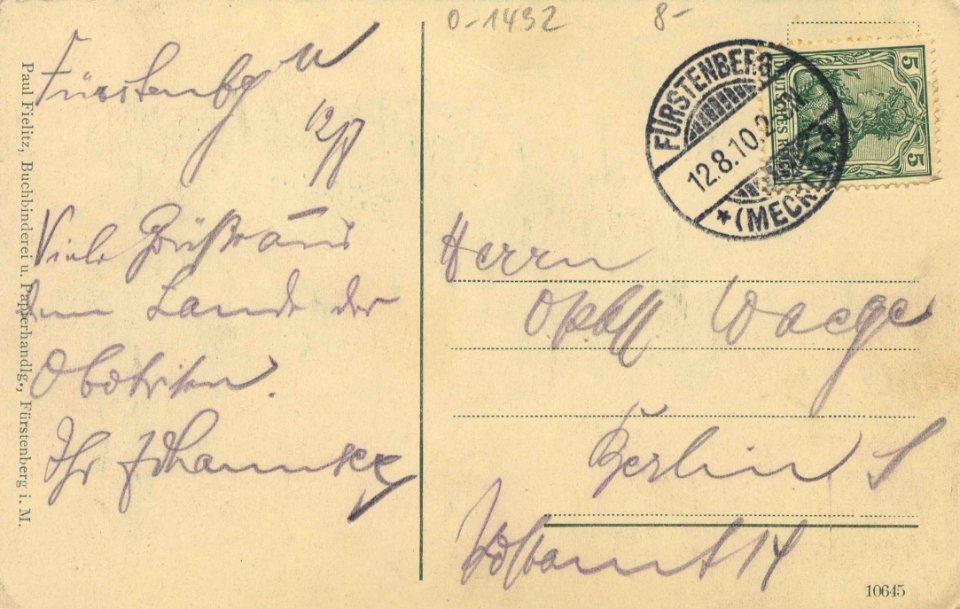 0-1492 8-
Fürstenbg
12/8
Viele Grüße aus
dem Lande der
Obotriten.
Ihr
Paul Fielitz, Buchbinderei u. Papierhandlg., Fürstenberg i. M.
FÜRSTENBERG
12.8.10.2-3N.
* (MECKLB)
5 5
DEUTSCHES
Herrn
Waege
Berlin S
Postamt 14
10645